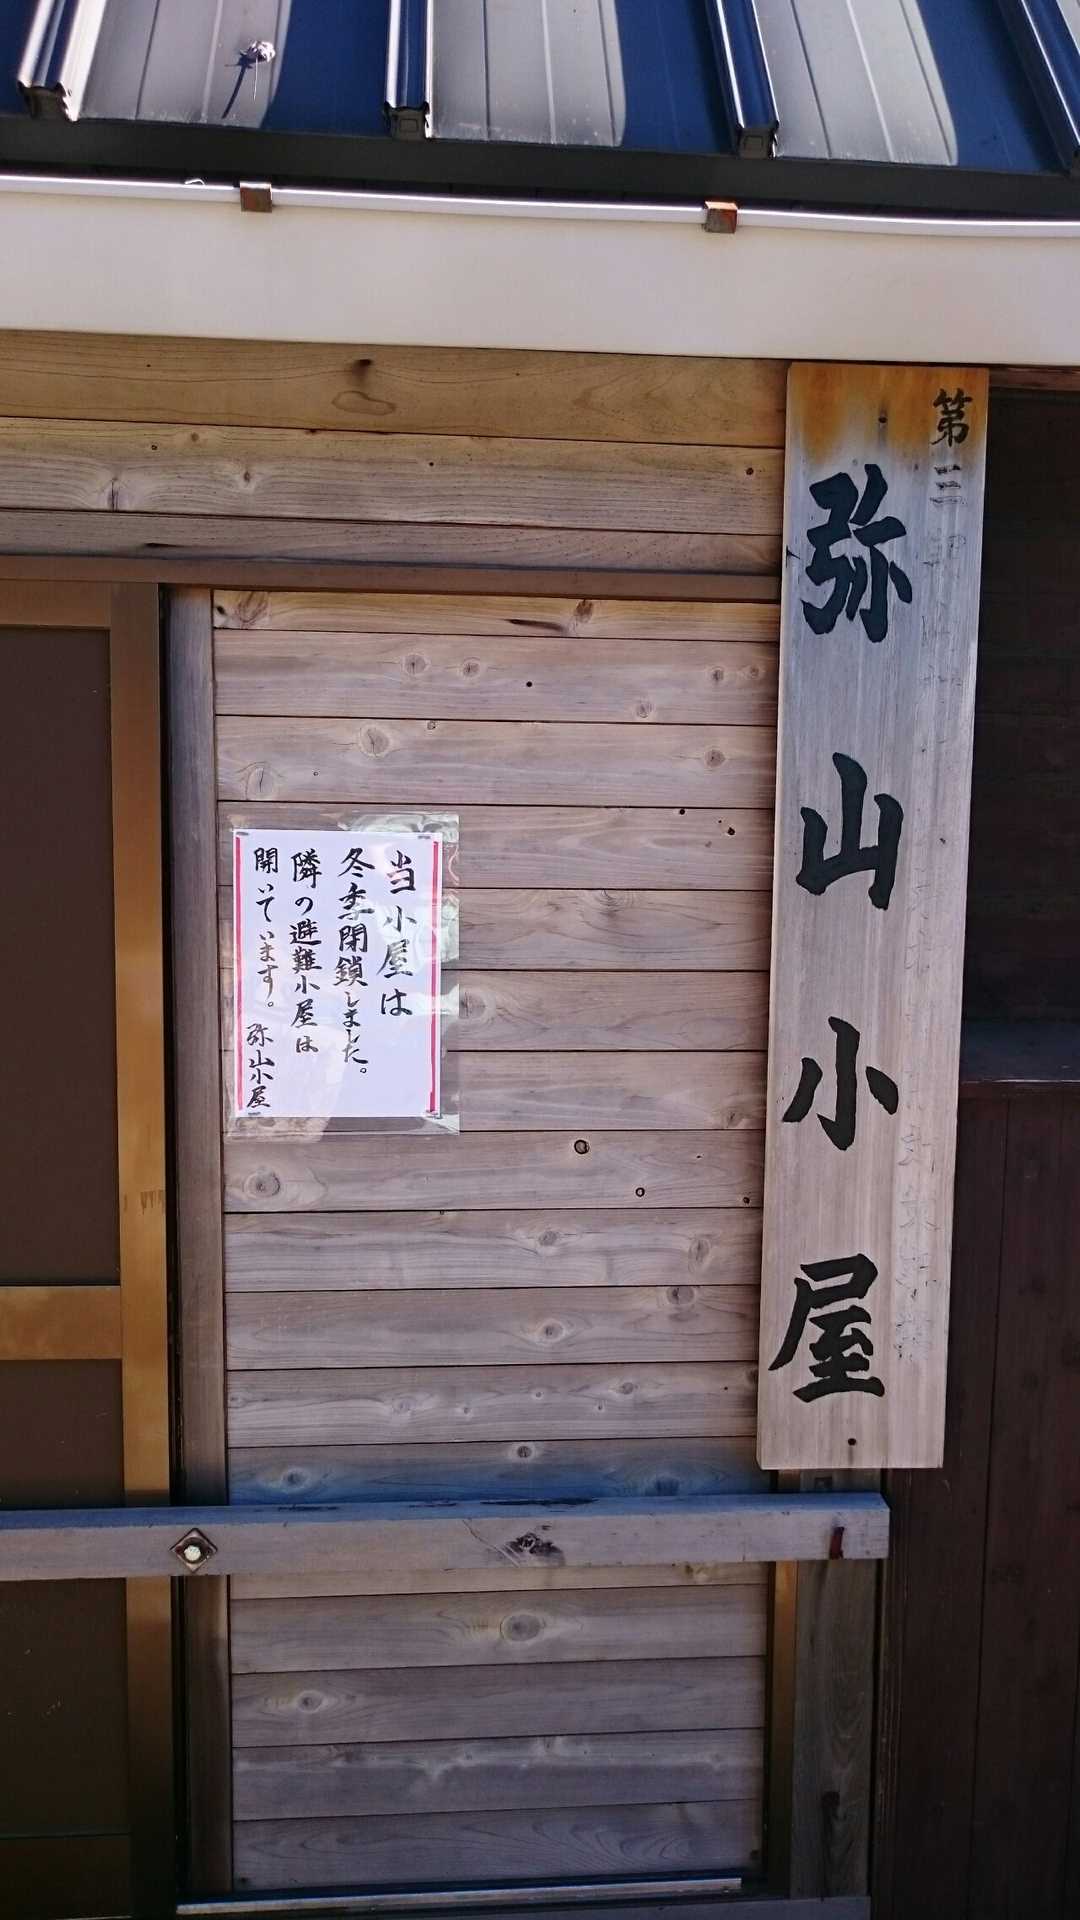 第三
弥山小屋
当小屋は
冬季閉鎖しました。
隣の避難小屋は
開いています。 弥山小屋